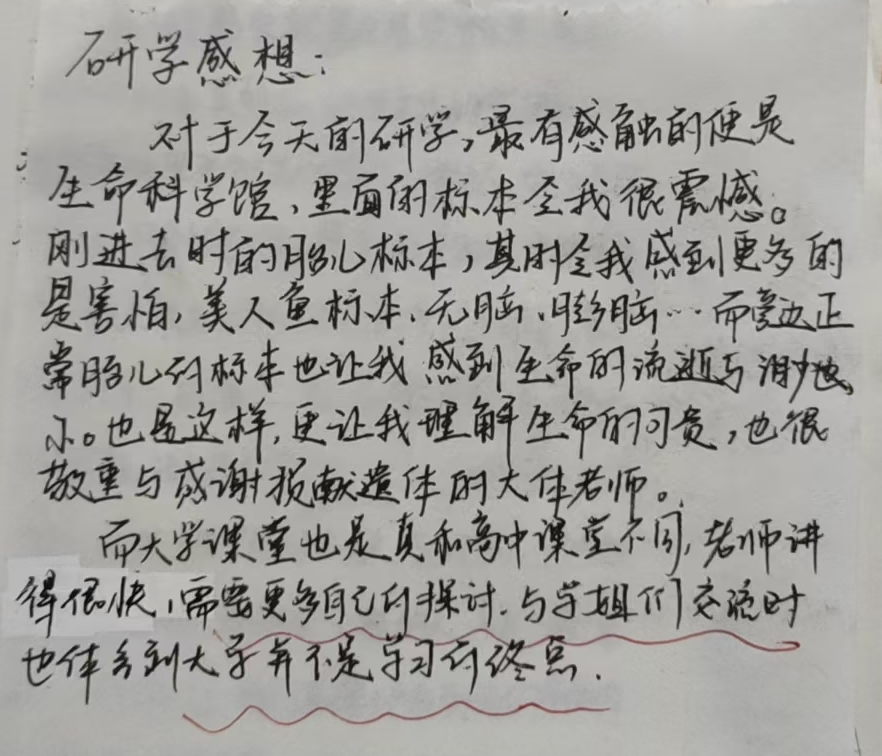 研学感想:
对于今天的研学,最有感触的便是
生命科学馆,里面的标本令我很震憾。
刚进去时的胎儿标本,其时令我感到更多的
是害怕,美人鱼标本、无脑、膨脑…而旁边正
常胎儿的标本也让我感到生命的流逝与渺
小。也是这样,更让我理解生命的可贵,也很
敬重与感谢捐献遗体的大体老师。
而大学课堂也是真和高中课堂不同,老师讲
得很快,需要更多自己的探讨.与学姐们交流时
也体会到大学并不是学习的终点.